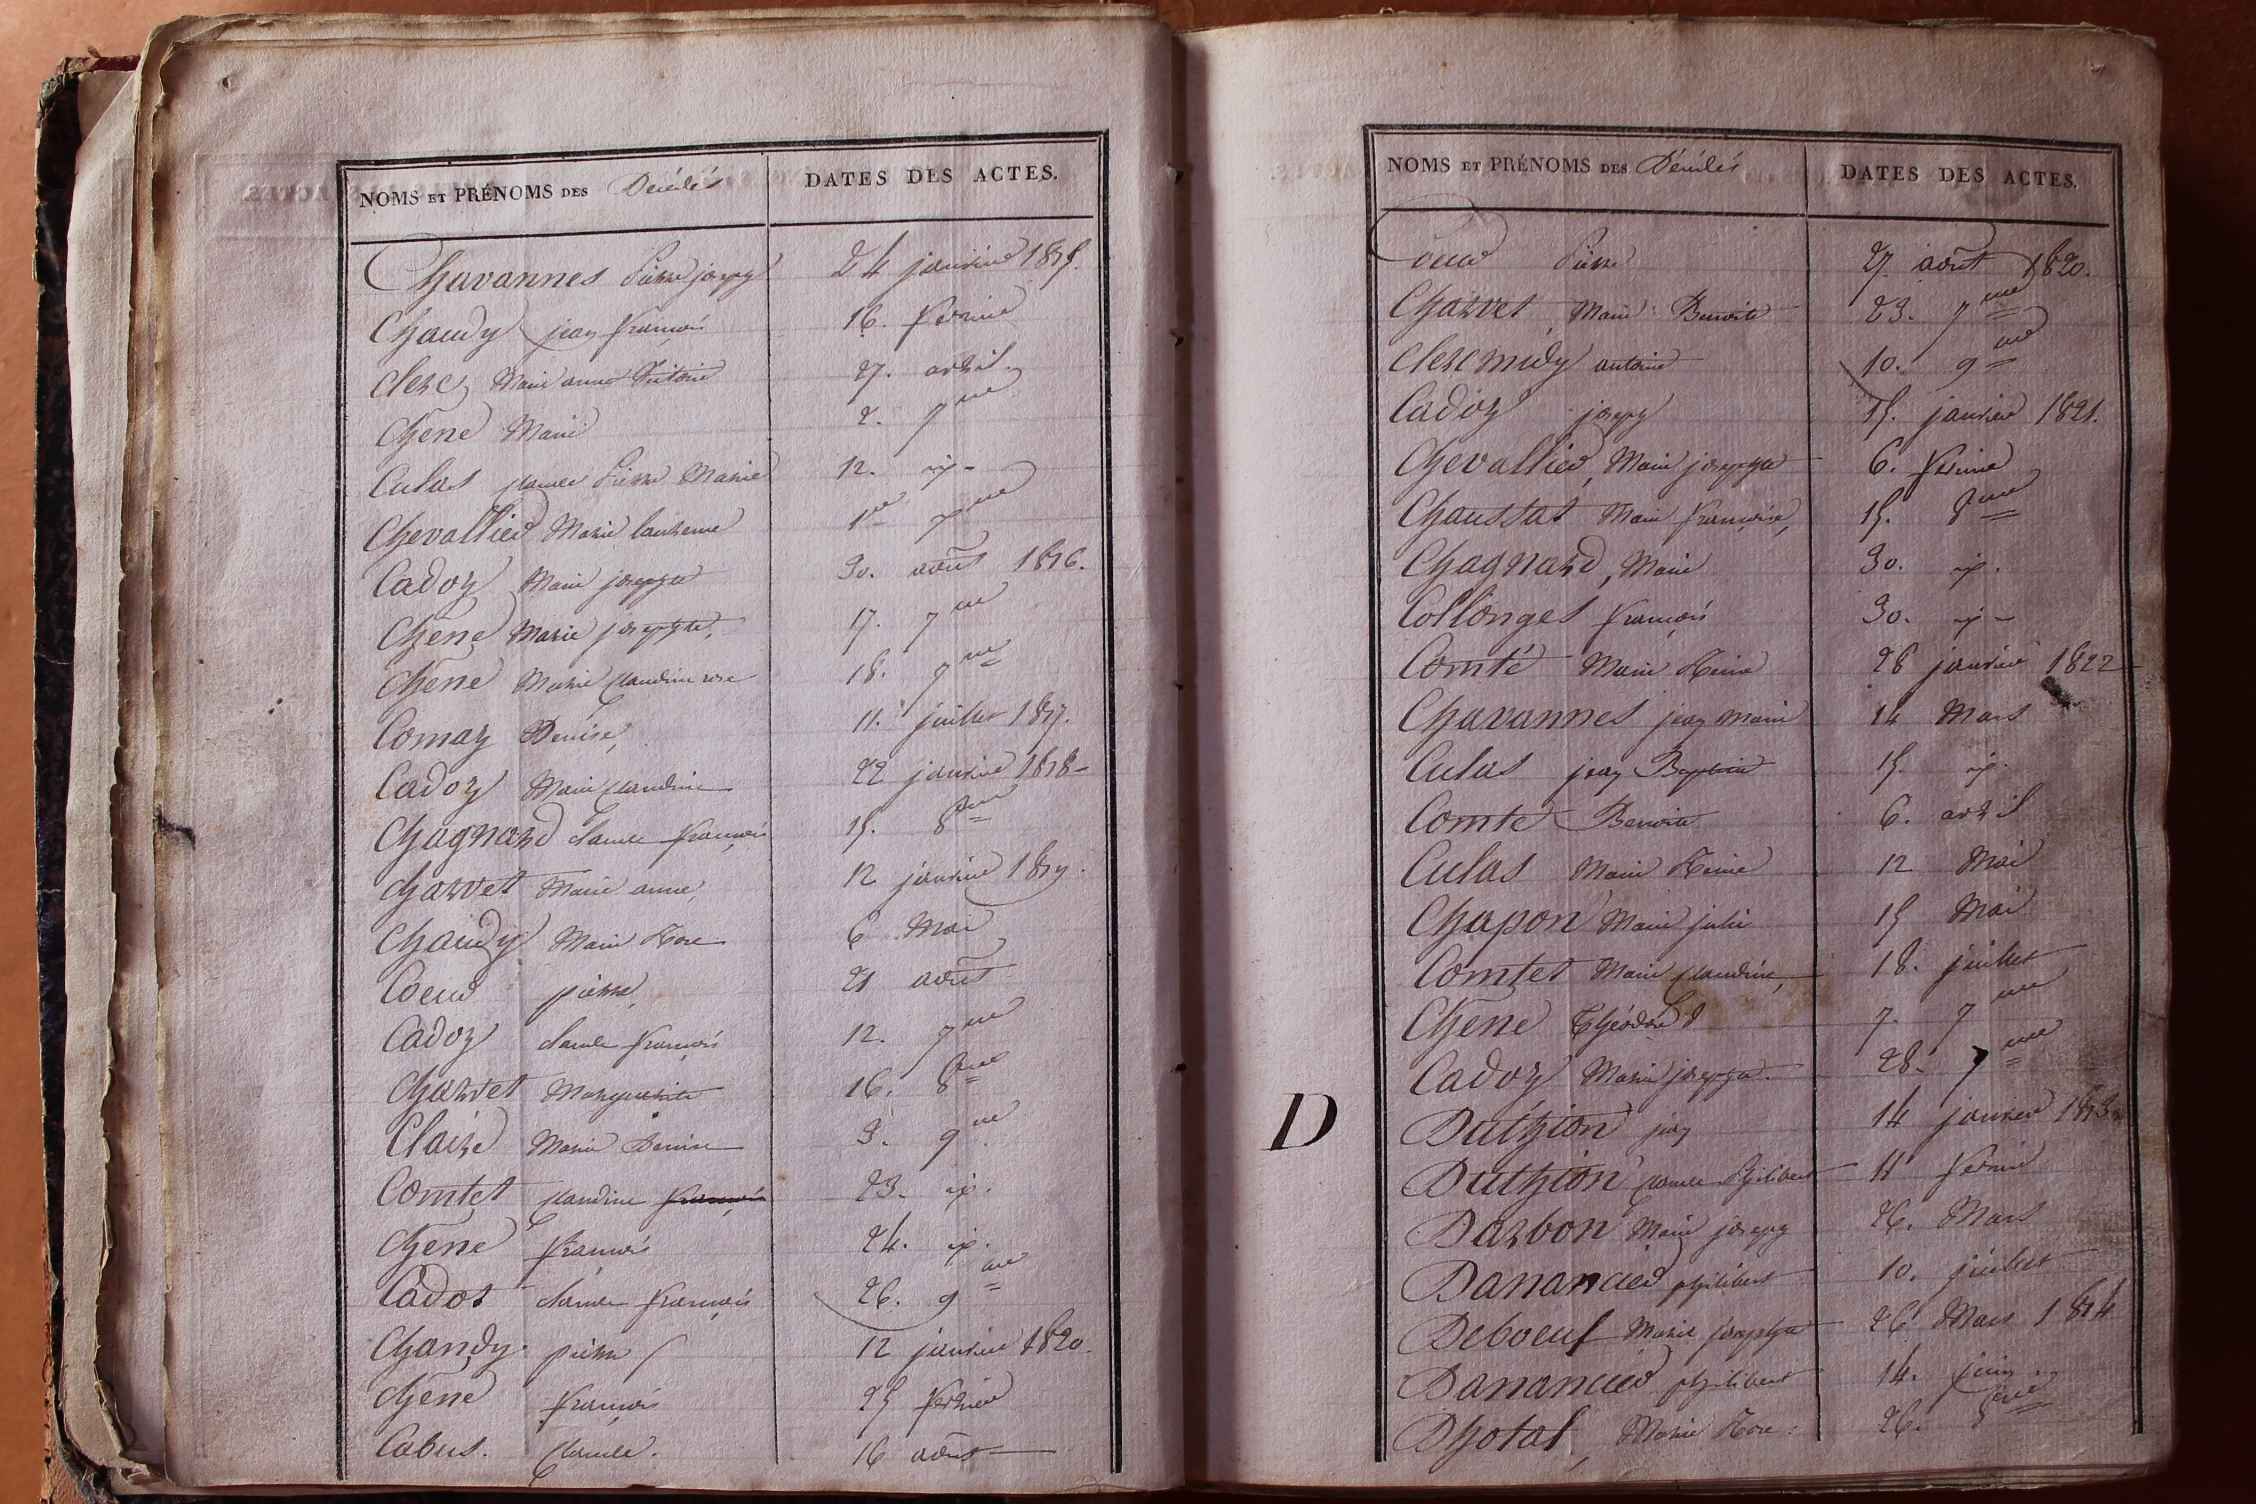 NOMS ET PRÉNOMS DES Décédés DATES DES ACTES.
Chavannes Pierre joseph 24 janvier 1815.
Chaudy jean françois 16. février
Clerc Marie anne 27. avril.
Chêne Marie 2. 7bre
Culas Claude Pierre Marie 12. id.
Chevallier Marie 1er
Cadoz Marie josephte 30. août 1816.
Chêne Marie josephte, 17. 7bre
Chêne Marie Claudine rose 18. 9bre
Comaz Denise, 11. juillet 1817.
Cadoz Marie Claudine 22 janvier 1818
Chagnard Claude françois 15. 8bre
Charvet Marie anne, 12 janvier 1819.
Chaudy Marie Rose 6 Mai
Coeur pierre, 21 août
Cadoz Claude françois 12. 7bre
Charvet Marguerite 16. 8bre
Claire Marie Denise 3. 9bre
Comtet Claudine françois 23. id.
Chêne françois 24. id.
Cadot Claude françois 26. 9bre
Chandy pierre 12 janvier 1820.
Chêne françois 25 février
Cabus. Claude. 16 août
NOMS ET PRÉNOMS DES Décédés DATES DES ACTES.
Coeur Pierre 27. août 1820.
Charvet Marie Benoite 23. 7bre
Clermidy antoine 10. 9bre
Cadoz joseph 15. janvier 1821.
Chevallier, Marie josephte 6. février
Chaussat Marie françoise, 15. 8bre
Chagnard, Marie 30. id.
Collonges françois 30. id
Comte Marie Reine 28 janvier 1822
Chavannes jean marie 14 Mars
Culas jean Baptiste 15. id.
Comte Benoite 6. avril
Culas Marie Reine 12 Mai
Chapon Marie julie 15 Mai
Comtet Marie Claudine, 18. juillet
Chêne Théodore 7. 7bre
Cadoz Marie josephte 28. 7bre
D
Duthion jean 14 janvier 1813
Duthion Claude Philibert 11 février
Darbon Marie joseph 26. Mars
Danancier philibert 10. juillet
Deboeuf Marie josephte 26. Mars 1814
Danancier philibert 14. juin
Dhotal, Marie Rose: 26. 8bre